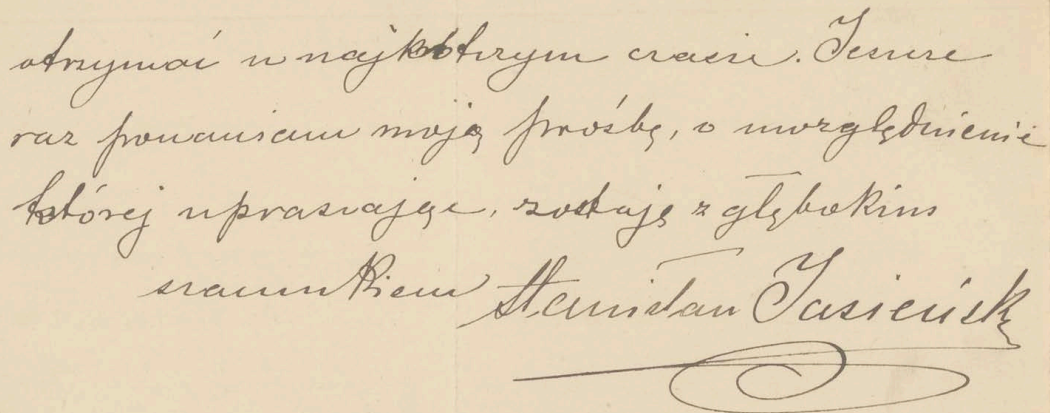 otrzymać w najkrótszym czasie. Jeszcze
raz ponawiam moją prośbę, o uwzględnienie
której upraszając, zostaję z głębokim
szacunkiem Stanisław Jasieński